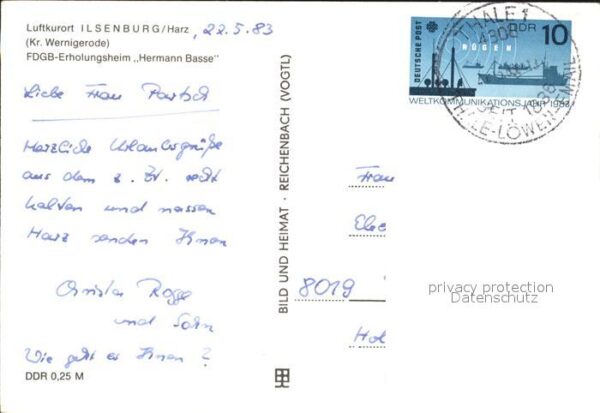 Luftkurort ILSENBURG/Harz, 22.5.83
(Kr. Wernigerode)
FDGB-Erholungsheim „Hermann Basse"
Liebe Frau Partsch
Herzliche Urlaubsgrüße
aus dem z. Zt. recht
kalten und nassen
Harz senden Ihnen
Christa Rogge
und Sohn
Wie geht es Ihnen ?
DDR 0,25 M
BILD UND HEIMAT · REICHENBACH (VOGTL)
DEUTSCHE POST
DDR 10
RÜGEN
WELTKOMMUNIKATIONSJAHR 1983
THALE 1
4308
SEIT 1836
Frau
8019
privacy protection
Datenschutz